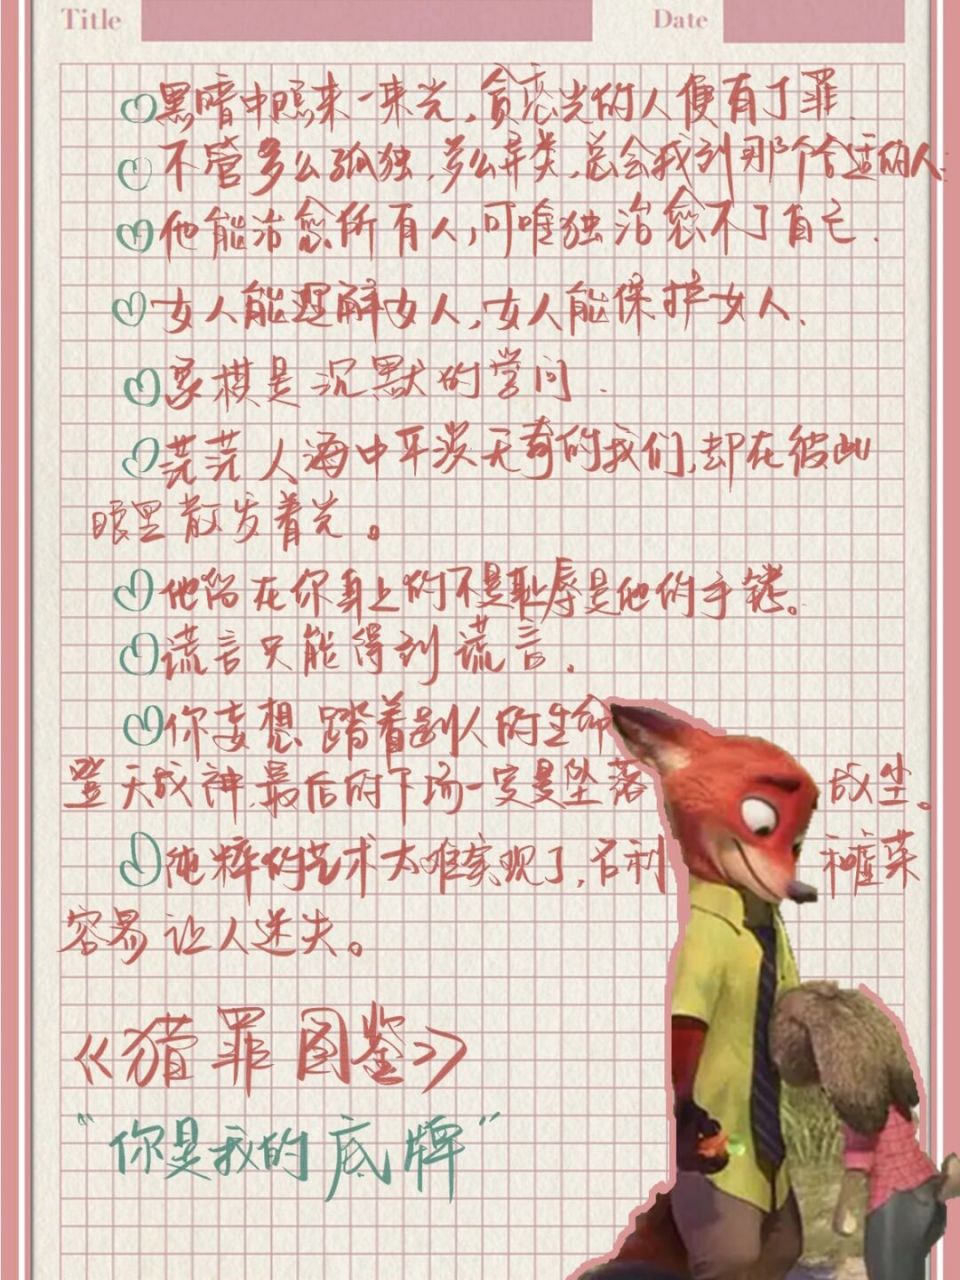 Title Date
黑暗中照来一束光，贪恋光的人便有了罪.
不管多么孤独，多么异类，总会找到那个合适的人.
他能治愈所有人，可唯独治愈不了自己.
女人能理解女人，女人能保护女人.
象棋是沉默的学问.
茫茫人海中平淡无奇的我们，却在彼此
眼里散发着光。
他留在你身上的不是耻辱是他的手铐。
谎言只能得到谎言.
你妄想踏着别人的生命
登天成神，最后的下场一定是坠落成尘。
纯粹的艺术太难实现了，名利和虚荣
容易让人迷失。
《猎罪图鉴》
“你是我的底牌”